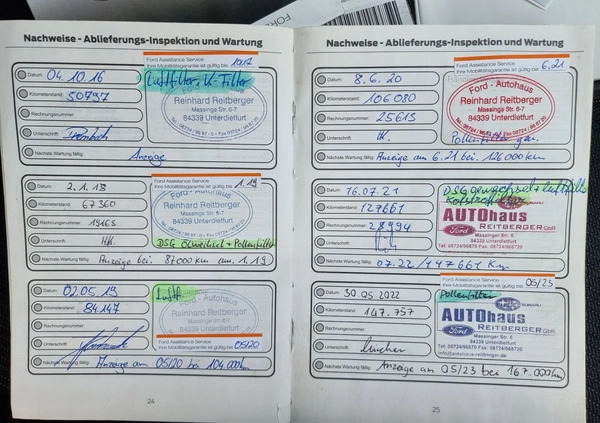 FORD
Nachweise - Ablieferungs-Inspektion und Wartung
Ford Assistance Service
Ihre Mobilitätsgarantie ist gültig bis 10.17
Datum: 04.10.16
Luftfilter, K-Filter
Kilometerstand: 50797
Ford - Autohaus
Reinhard Reitberger
Massinger Str. 6-7
84339 Unterdietfurt
Rechnungsnummer:
Unterschrift:
Nächste Wartung fällig: Anzeige
Ford Assistance Service
Ihre Mobilitätsgarantie ist gültig bis 1.19
Datum: 2.1.18
Kilometerstand: 67360
Ford - Autohaus
Reinhard Reitberger
Massinger Str. 6-7
84339 Unterdietfurt
Rechnungsnummer: 19163
Unterschrift:
DSG Ölwechsel + Pollenfilter
Nächste Wartung fällig: Anzeige bei 87000 km am 1.19
Datum: 02.05.19
Luftf.
Kilometerstand: 84.147
Ford - Autohaus
Reinhard Reitberger
Massinger Str. 6-7
84339 Unterdietfurt
Rechnungsnummer:
Ford Assistance Service
Ihre Mobilitätsgarantie ist gültig bis 05/20
Unterschrift:
Nächste Wartung fällig: Anzeige am 05/20 bei 104000km
24
Nachweise - Ablieferungs-Inspektion und Wartung
Ford Assistance Service
Ihre Mobilitätsgarantie ist gültig bis 6.21
Datum: 8.6.20
Kilometerstand: 106080
Ford - Autohaus
Reinhard Reitberger
Massinger Str. 6-7
84339 Unterdietfurt
Rechnungsnummer: 25615
Unterschrift:
Pollenfilter
Nächste Wartung fällig: Anzeige am 6.21 bei 126000km
Ford Assistance Service
Datum: 16.07.21
DSG Ölwechsel + Luftfilter
Kilometerstand: 127661
AUTOhaus
Ford REITBERGER GbR
Massinger Str. 6
84339 Unterdietfurt
Rechnungsnummer: 28994
Unterschrift:
Nächste Wartung fällig: 07.22/147661 Km
Ford Assistance Service
Ihre Mobilitätsgarantie ist gültig bis 05/23
Datum: 30.05.2022
Pollenfilter
SUBARU
Kilometerstand: 147.757
AUTOhaus
Ford REITBERGER GbR
Massinger Str. 6
84339 Unterdietfurt
Rechnungsnummer:
Tel. 08724/96870 Fax 08724/968720
Unterschrift:
Nächste Wartung fällig: Anzeige am 05/23 bei 167.000km
25